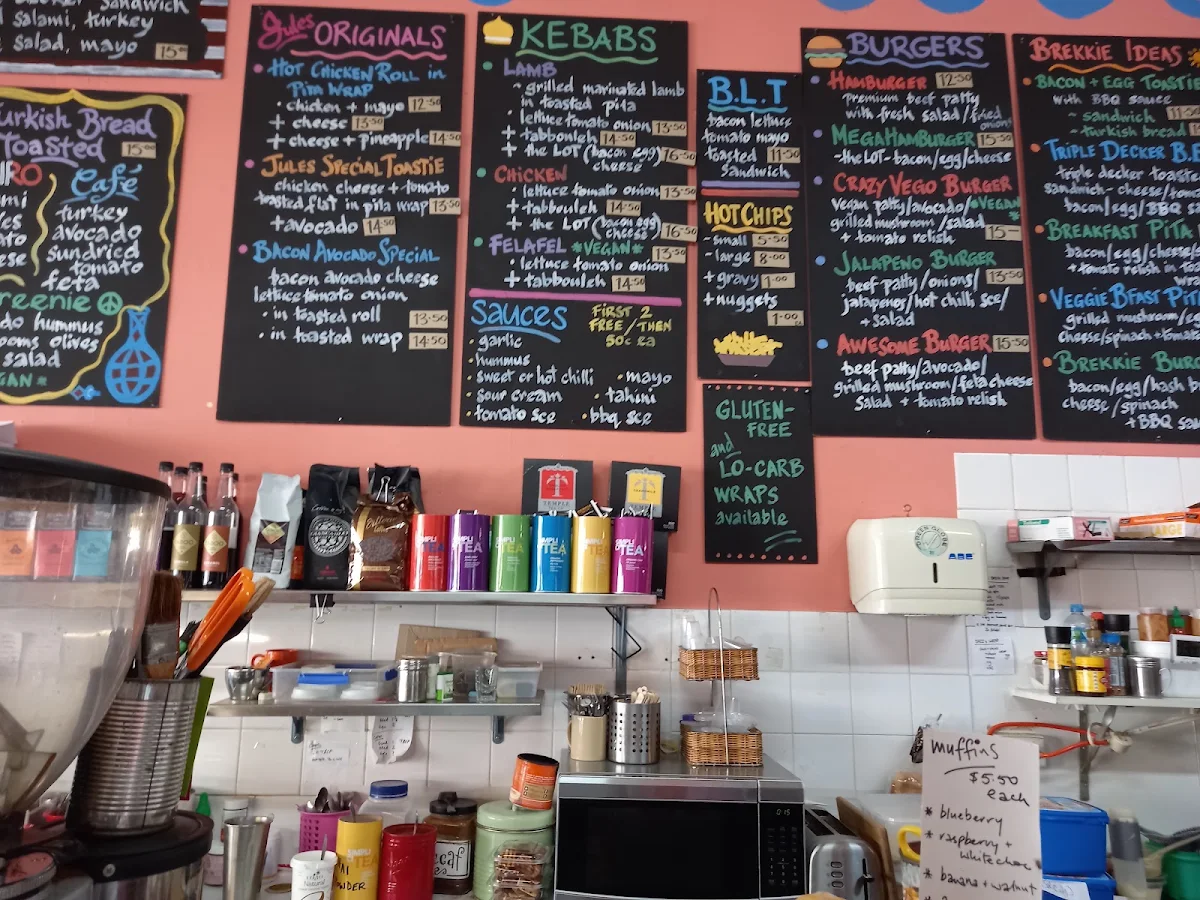 salami, turkey
salad, mayo 15-
Turkish Bread
Toasted 15-
Café
turkey
avocado
sundried
tomato
feta
hummus
olives
salad
Jules ORIGINALS
• HOT CHICKEN ROLL in
PITA WRAP
• chicken + mayo 12-50
+ cheese 13-50
+ cheese + pineapple 14-50
• JULES SPECIAL TOASTIE
chicken cheese + tomato
toasted flat in pita wrap 13-50
+ avocado 14-50
• BACON AVOCADO SPECIAL
bacon avocado cheese
lettuce tomato onion
• in toasted roll 13-50
• in toasted wrap 14-50
KEBABS
• LAMB
~ grilled marinated lamb
in toasted pita
lettuce tomato onion 13-50
+ tabbouleh 14-50
+ the LOT (bacon egg) 16-50
cheese
• CHICKEN
• lettuce tomato onion 13-50
+ tabbouleh 14-50
+ the LOT (bacon egg) 16-50
cheese
• FELAFEL *VEGAN* 13-50
• lettuce tomato onion
+ tabbouleh 14-50
SAUCES
FIRST 2
FREE/THEN
50c ea
• garlic
• hummus
• sweet or hot chilli • mayo
• sour cream • tahini
• tomato sce • bbq sce
B.L.T
bacon lettuce
tomato mayo
toasted 11-50
Sandwich
HOT CHIPS
~ small 5-50
~ large 8-00
+ gravy 1-00
+ nuggets
1-00 ea
GLUTEN-
FREE
and
LO-CARB
WRAPS
available
BURGERS
• HAMBURGER 12-50
premium beef patty
with fresh salad/fried
onion
• MEGAHAMBURGER 15-50
-the LOT- bacon/egg/cheese
• CRAZY VEGO BURGER
vegan patty/avocado/ *VEGAN*
grilled mushroom/salad
+ tomato relish 15-
• JALAPENO BURGER
beef patty/onions/ 13-50
jalapenos/hot chilli sce/
+ salad
• AWESOME BURGER 15-50
beef patty/avocado/
grilled mushroom/feta cheese
Salad + tomato relish
BREKKIE IDEAS
• BACON + EGG TOASTIE
with BBQ sauce
~ sandwich
~ turkish bread
• TRIPLE DECKER B.E
triple decker toaste
sandwich - cheese/tom
bacon/egg/BBQ
• BREAKFAST PITA
bacon/egg/cheese
+ tomato relish in
• VEGGIE BFAST PIT
grilled mushroom/
cheese/spinach + toma
• BREKKIE BUR
bacon/egg/hash
cheese/spinach
+ BBQ sau
TEMPLE
TEA
TEA
TEA
TEA
TEA
TEA
ABB
muffins
$5.50
each
* blueberry
* raspberry +
white choc
* banana + walnut